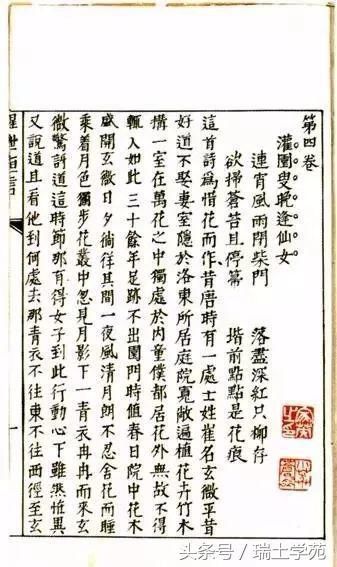 第四卷
灌園叟晚逢仙女
連宵風雨閉柴門　落盡深紅只柳存
欲掃蒼苔且停箒　堦前點點是花痕
這首詩為惜花而作昔唐時有一處士姓崔名玄微平昔
好道不娶妻室隱於洛東所居庭院寬敞遍植花卉竹木
搆一室在萬花之中獨處於內童僕都居花外無故不得
輒入如此三十餘年足跡不出園門時值春日院中花木
盛開玄微日夕徜徉其間一夜風清月朗不忍舍花而睡
乘着月色獨步花叢中忽見月影下一青衣冉冉而來玄
微驚訝道這時節那有得女子到此行動心下雖然恠異
又說道且看他到何處去那青衣不往東不往西徑至玄
醒世恒言
一
头条号 / 瑞士学苑